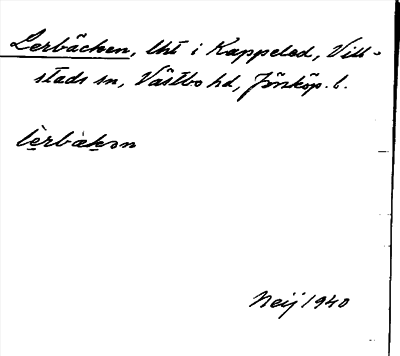 Lerbäcken, lht i Kappelad, Vill-
stads sn, Västbo hd, Jönköp. l.
lèrbàkən
Neij 1940